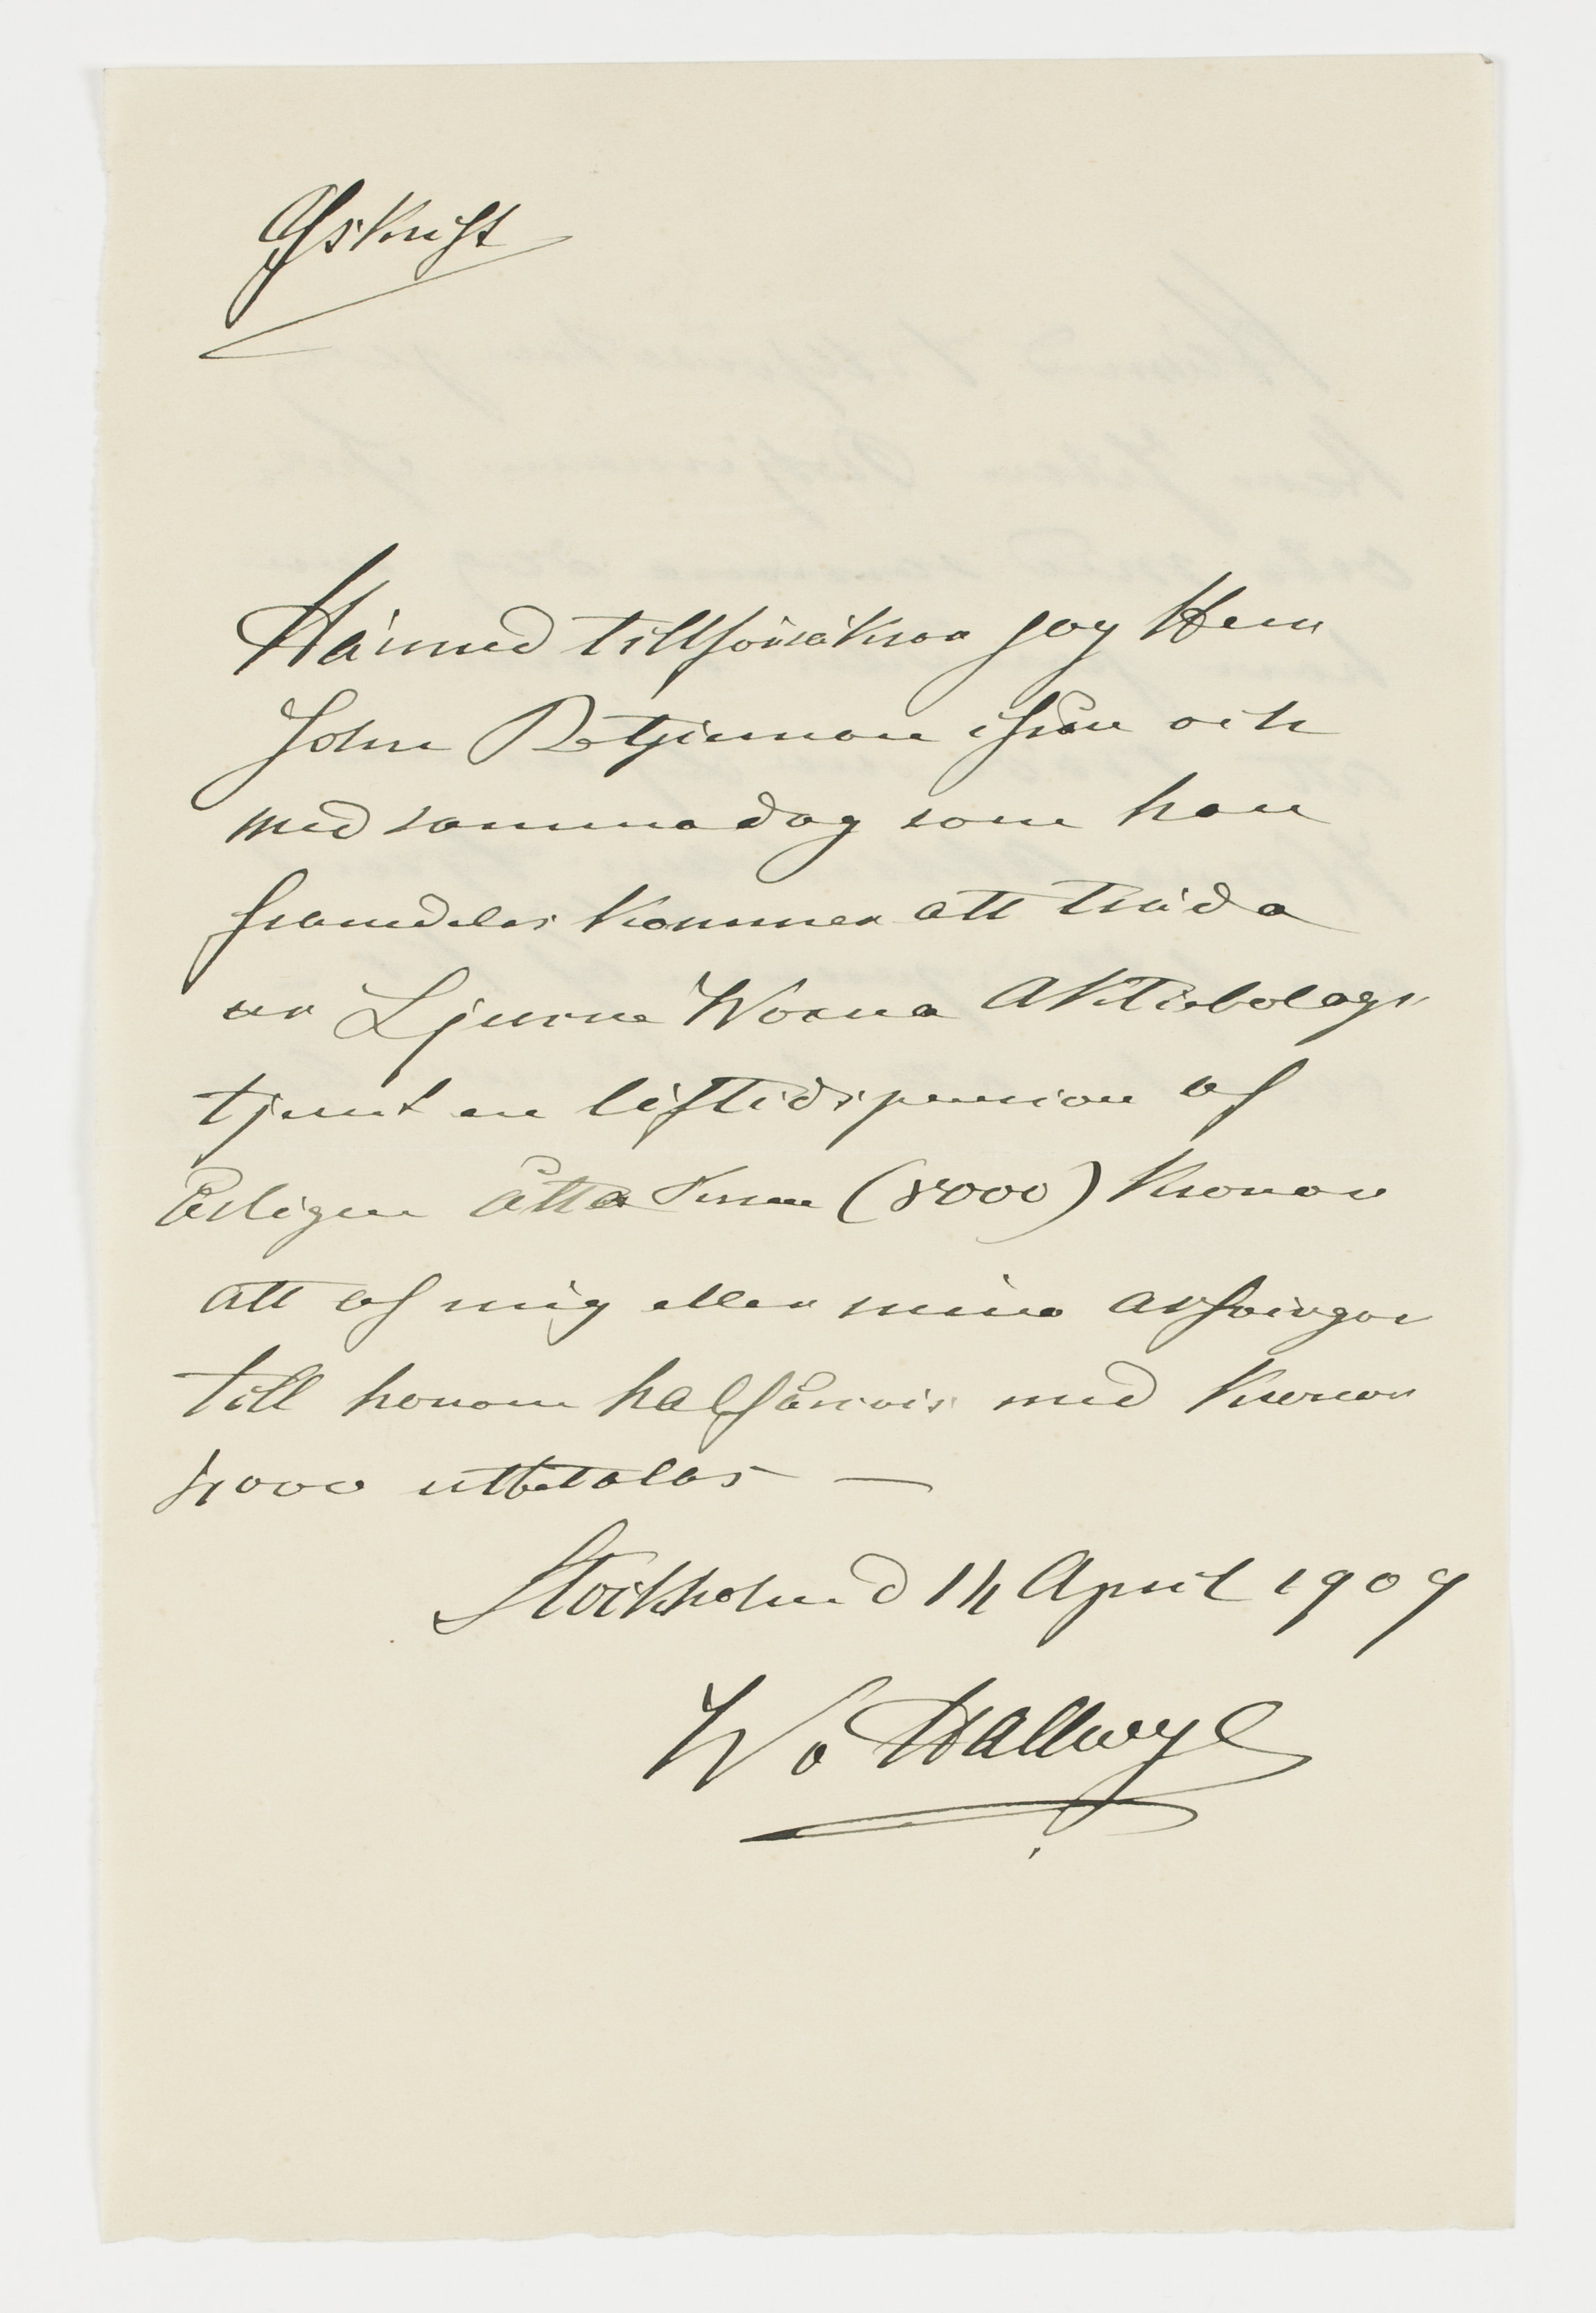 Afskrift
Härmed tillförsäkrar jag Herr
John Retzinman ifrån och
med samma dag som han
framdeles kommer att träda
ur Ljusne Woxna Aktiebolags
tjenst en liftidspension af
Årligen Åtta Tusen (8000) Kronor
att af mig eller mina arfvingar
till honom halfårsvis med Kronor
4000 utbetalas —
Stockholm d 14 April 1909
W v Hallwyl